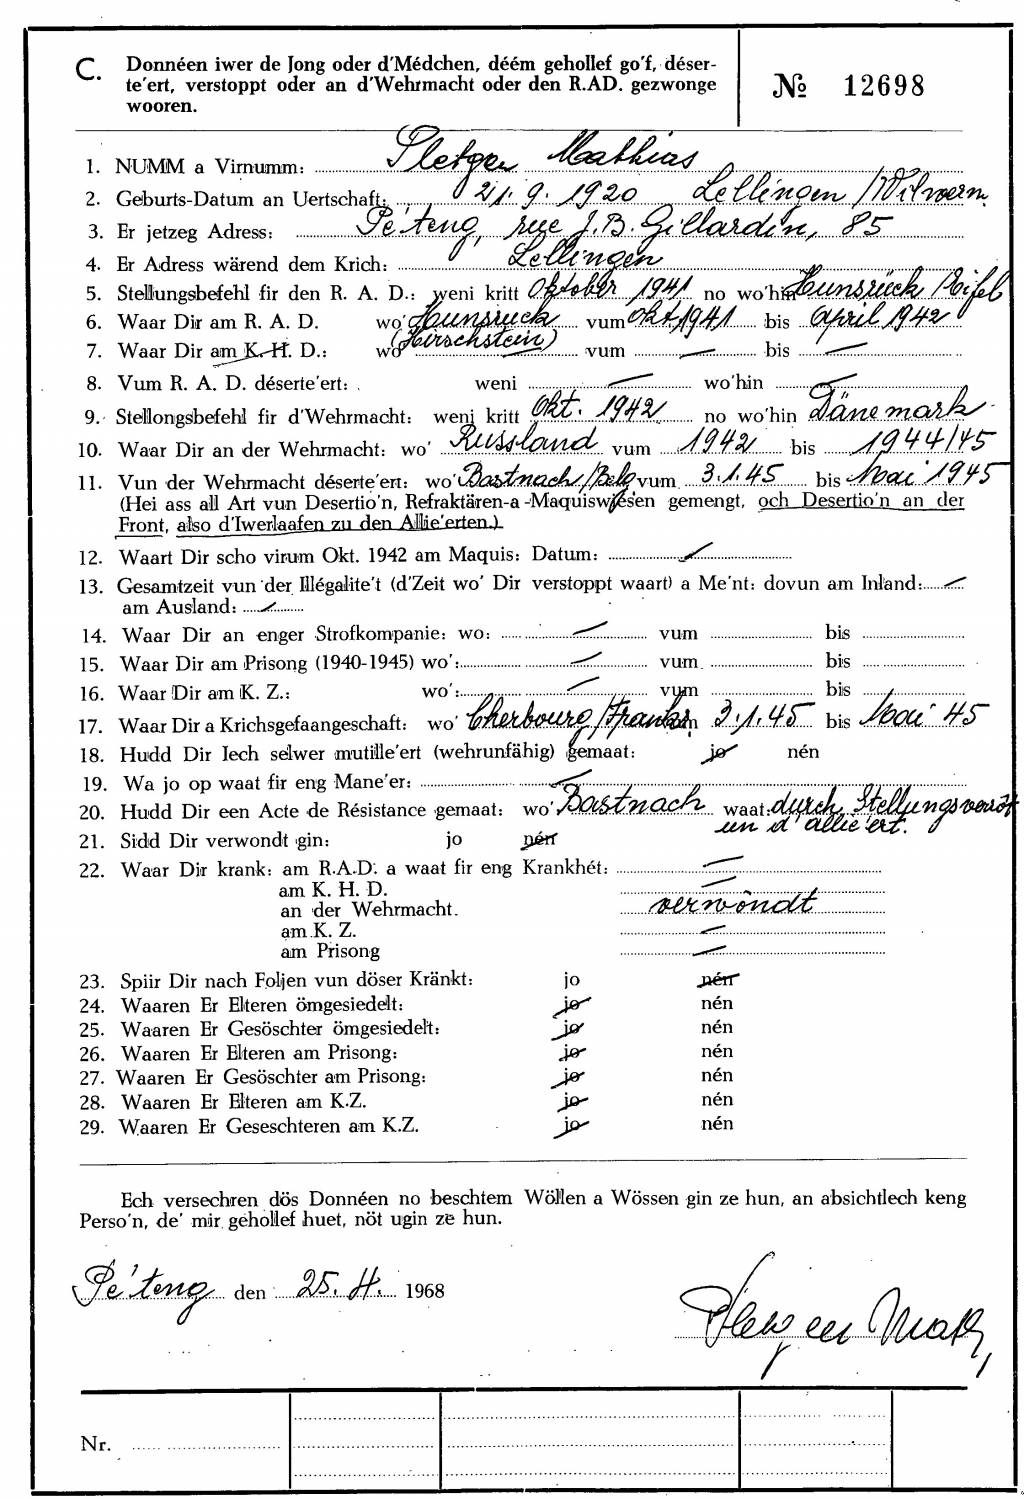 C. Donnéen iwer de Jong oder d'Médchen, déém gehollef go'f, déser-
te'ert, verstoppt oder an d'Wehrmacht oder den R.AD. gezwonge
wooren.
№ 12698
1. NUMM a Virnumm: Mathias
2. Geburts-Datum an Uertschaft: 21. 9. 1920 Lellingen /Wilwern.
3. Er jetzeg Adress: Pe'teng, rue J.B. Gillardin, 85
4. Er Adress wärend dem Krich: Lellingen
5. Stellungsbefehl fir den R. A. D.: weni kritt Oktober 1941 no wo'hin Hunsrück/Eifel
6. Waar Dir am R. A. D. wo' Hunsrück vum Okt. 1941 bis April 1942
(Hirschstein)
7. Waar Dir am K. H. D.: wo — vum — bis —
8. Vum R. A. D. déserte'ert: weni — wo'hin —
9. Stellongsbefehl fir d'Wehrmacht: weni kritt Okt. 1942 no wo'hin Dänemark
10. Waar Dir an der Wehrmacht: wo' Russland vum 1942 bis 1944/45
11. Vun der Wehrmacht déserte'ert: wo' Bastnach/Belg vum 3.1.45 bis Mai 1945
(Hei ass all Art vun Desertio'n, Refraktären-a -Maquiswiesen gemengt, och Desertio'n an der
Front, also d'Iwerlaafen zu den Allie'erten.)
12. Waart Dir scho virum Okt. 1942 am Maquis: Datum: —
13. Gesamtzeit vun der Illégalite't (d'Zeit wo' Dir verstoppt waart) a Me'nt: dovun am Inland: —
am Ausland: —
14. Waar Dir an enger Strofkompanie: wo: — vum bis
15. Waar Dir am Prisong (1940-1945) wo': — vum bis
16. Waar Dir am K. Z.: wo': — vum bis
17. Waar Dir a Krichsgefaangeschaft: wo' Cherbourg/Frankr. 3.1.45 bis Mai 45
18. Hudd Dir Iech selwer mutille'ert (wehrunfähig) gemaat: jo nén
19. Wa jo op waat fir eng Mane'er: —
20. Hudd Dir een Acte de Résistance gemaat: wo' Bastnach waat: durch
un d' allie'ert.
21. Sidd Dir verwondt gin: jo nén
22. Waar Dir krank: am R.A.D. a waat fir eng Krankhét: —
am K. H. D. —
an der Wehrmacht. verwôndt
am K. Z. —
am Prisong —
23. Spiir Dir nach Foljen vun döser Kränkt: jo nén
24. Waaren Er Elteren ömgesiedelt: jo nén
25. Waaren Er Gesöschter ömgesiedelt: jo nén
26. Waaren Er Elteren am Prisong: jo nén
27. Waaren Er Gesöschter am Prisong: jo nén
28. Waaren Er Elteren am K.Z. jo nén
29. Waaren Er Geseschteren am K.Z. jo nén
Ech versechren dös Donnéen no beschtem Wöllen a Wössen gin ze hun, an absichtlech keng
Perso'n, de' mir gehollef huet, nöt ugin ze hun.
Pe'teng den 25. 4. 1968
Nr.